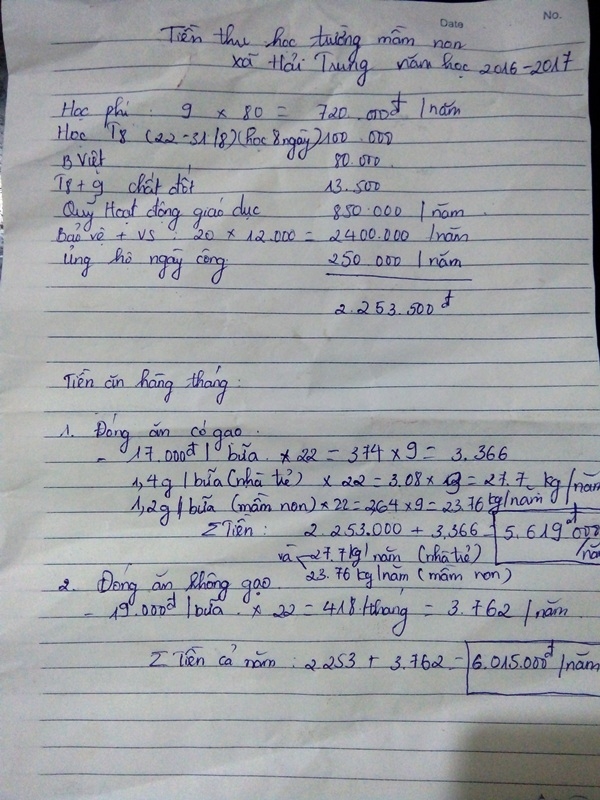 Date No.
Tiền thu học trường mầm non
xã Hải Trung năm học 2016-2017
Học phí : 9 x 80 = 720.000đ / năm
Học T8 (22-31/8)(học 8 ngày) 100.000
B Việt 80.000
T8+9 chất đốt 13.500
Quỹ Hoạt động giáo dục 850.000 / năm
Bảo vệ + VS : 20 x 12.000 = 2400.000 / năm
Ủng hộ ngày công: 250.000 / năm
2.253.500đ
Tiền ăn hàng tháng:
1. Đóng ăn có gạo.
- 17.000đ / bữa x 22 = 374 x 9 = 3.366
1,4g / bữa (nhà trẻ) x 22 = 3.08 x 9 = 27.7 kg/năm
1,2g / bữa (mầm non) x 22 = 264 x 9 = 23.76 kg/năm
Σ Tiền : 2.253.000 + 3,366 = 5.619.000đ
/năm
và 27.7kg/ năm (nhà trẻ)
23.76 kg/năm (mầm non)
2. Đóng ăn không gạo.
- 19.000đ / bữa x 22 = 418/tháng = 3.762 / năm
Σ Tiền cả năm : 2.253 + 3.762 = 6.015.000đ/năm